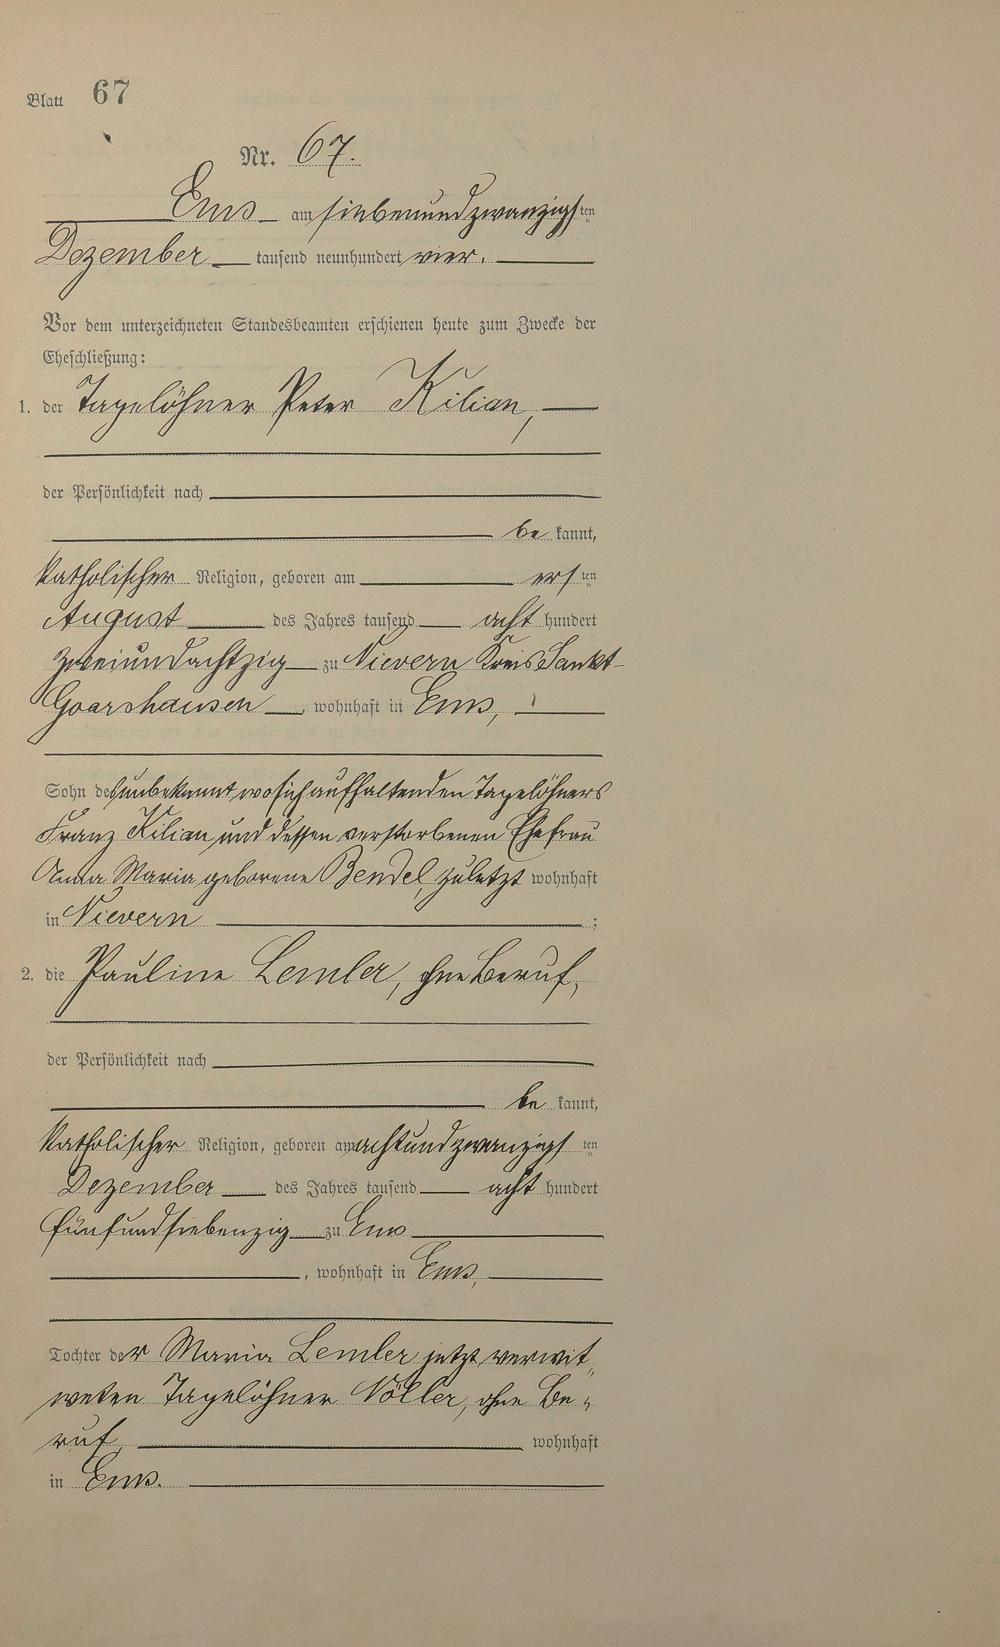 Blatt 67
Nr. 67.
Ems am siebenundzwanzigsten
Dezember tausend neunhundert vier.
Vor dem unterzeichneten Standesbeamten erschienen heute zum Zwecke der
Eheschließung:
1. der Tagelöhner Peter Kilian,
der Persönlichkeit nach
be kannt,
katholischer Religion, geboren am ersten
August des Jahres tausend acht hundert
zweiundachtzig zu Nievern Kreis Sankt
Goarshausen, wohnhaft in Ems,
Sohn des unbekannt wo sich aufhaltenden Tagelöhners
Franz Kilian und dessen verstorbenen Ehefrau
Anna Maria geborene Bendel, zuletzt wohnhaft
in Nievern ;
2. die Pauline Lemler, ohne Beruf,
der Persönlichkeit nach
be kannt,
katholischer Religion, geboren am achtundzwanzigsten
Dezember des Jahres tausend acht hundert
fünfundsiebenzig zu Ems
, wohnhaft in Ems,
Tochter der Maria Lemler jetzt verwit„
weten Tagelöhner Nöller, ohne Be„
ruf, wohnhaft
in Ems.